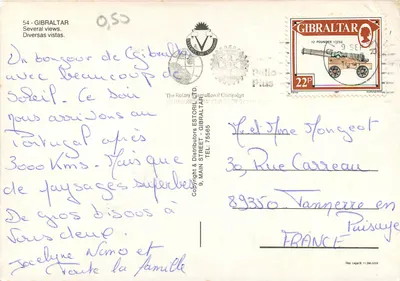 54 - GIBRALTAR
Several views.
Diversas vistas.
0,50
Un bonjour de Gibraltar
avec beaucoup de
Soleil. Ce soir
nous arrivons au
Portugal après
3000 Kms. Mais que
de paysages superbes
De gros bisous à
Vous deux.
Jocelyne Nano et
Toute la famille
Copyright & Distributors ESTORIL LTD.
9, MAIN STREET - GIBRALTAR
TEL: 75565
The Rotary Campaign
Polio
Plus
9 SEP
GIBRALTAR
22P
M. et Mme Mongeot
30, Rue Carreau
89350 Tannerre en
Puisaye
FRANCE